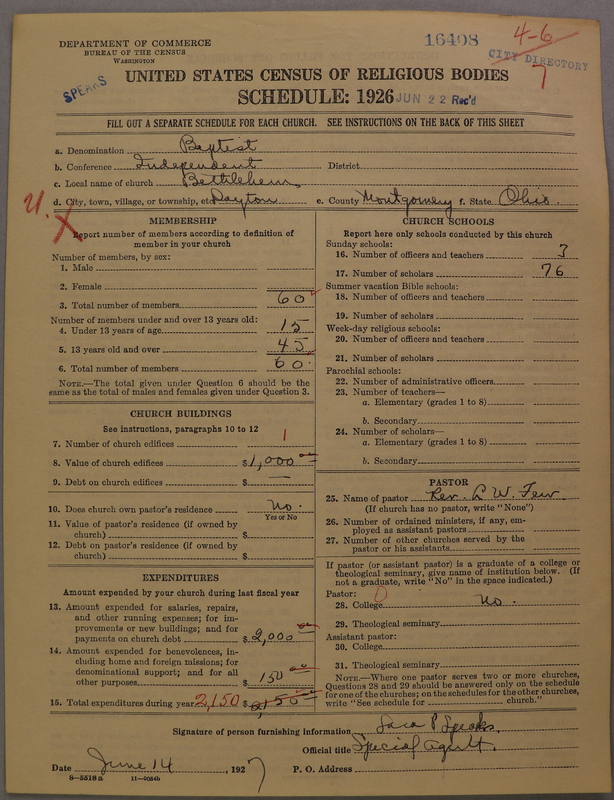 DEPARTMENT OF COMMERCE
BUREAU OF THE CENSUS
WASHINGTON
16408
4-6
CITY DIRECTORY
7
SPEARS
UNITED STATES CENSUS OF RELIGIOUS BODIES
SCHEDULE: 1926
JUN 22 Rec'd
FILL OUT A SEPARATE SCHEDULE FOR EACH CHURCH. SEE INSTRUCTIONS ON THE BACK OF THIS SHEET
a. Denomination Baptist
b. Conference Independent District
c. Local name of church Bethlehem
d. City, town, village, or township, etc. Dayton e. County Montgomery f. State Ohio.
U.
X
MEMBERSHIP
Report number of members according to definition of
member in your church
Number of members, by sex:
1. Male
2. Female
3. Total number of members 60
Number of members under and over 13 years old:
4. Under 13 years of age 15
5. 13 years old and over 45
6. Total number of members 60
NOTE.—The total given under Question 6 should be the
same as the total of males and females given under Question 3.
CHURCH BUILDINGS
See instructions, paragraphs 10 to 12
7. Number of church edifices 1
8. Value of church edifices $1,000
9. Debt on church edifices $ —
10. Does church own pastor's residence No.
Yes or No
11. Value of pastor's residence (if owned by
church) $
12. Debt on pastor's residence (if owned by
church) $
EXPENDITURES
Amount expended by your church during last fiscal year
13. Amount expended for salaries, repairs,
and other running expenses; for im-
provements or new buildings; and for
payments on church debt $2,000
14. Amount expended for benevolences, in-
cluding home and foreign missions; for
denominational support; and for all
other purposes $150
15. Total expenditures during year 2,150 $2,150
CHURCH SCHOOLS
Report here only schools conducted by this church
Sunday schools:
16. Number of officers and teachers 3
17. Number of scholars 76
Summer vacation Bible schools:
18. Number of officers and teachers
19. Number of scholars
Week-day religious schools:
20. Number of officers and teachers
21. Number of scholars
Parochial schools:
22. Number of administrative officers
23. Number of teachers—
a. Elementary (grades 1 to 8)
b. Secondary
24. Number of scholars—
a. Elementary (grades 1 to 8)
b. Secondary
PASTOR
25. Name of pastor Rev. L. W. Few
(If church has no pastor, write "None")
26. Number of ordained ministers, if any, em-
ployed as assistant pastors
27. Number of other churches served by the
pastor or his assistants
If pastor (or assistant pastor) is a graduate of a college or
theological seminary, give name of institution below. (If
not a graduate, write "No" in the space indicated.)
Pastor:
28. College 0 No.
29. Theological seminary
Assistant pastor:
30. College
31. Theological seminary
NOTE.—Where one pastor serves two or more churches,
Questions 28 and 29 should be answered only on the schedule
for one of the churches; on the schedules for the other churches,
write "See schedule for church."
Signature of person furnishing information Sara P Speaks.
Official title Special Agent.
Date June 14, 1927 P. O. Address
8—5518a 11—9054b